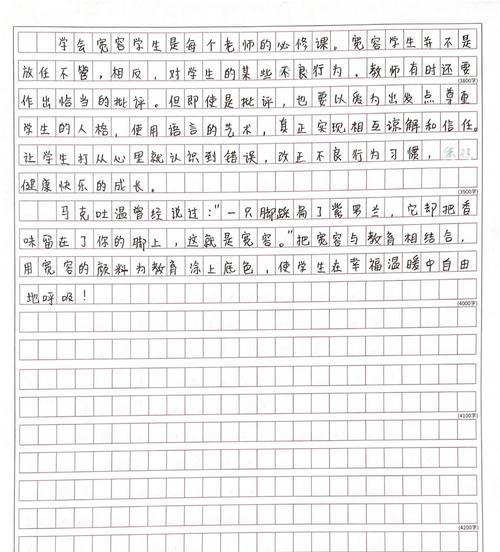 学会宽容学生是每个老师的必修课。宽容学生并不是
放任不管,相反,对学生的某些不良行为、教师有时还要
(3800字)
作出恰当的批评。但即使是批评,也要以爱为出发点尊重
学生的人格,使用语言的艺术,真正实现相互谅解和信任。
让学生打从心里就认识到错误,改正不良行为习惯,
健康快乐的成长。
(3900字)
马克吐温曾经说过:"一只脚踩扁了紫罗兰,它却把香
味留在了你的脚上,这就是宽容。"把宽容与教育相结合,
用宽容的颜料为教育涂上底色,使学生在幸福温暖中自由
地呼吸!
(4000字)
(4100字)
(4200字)